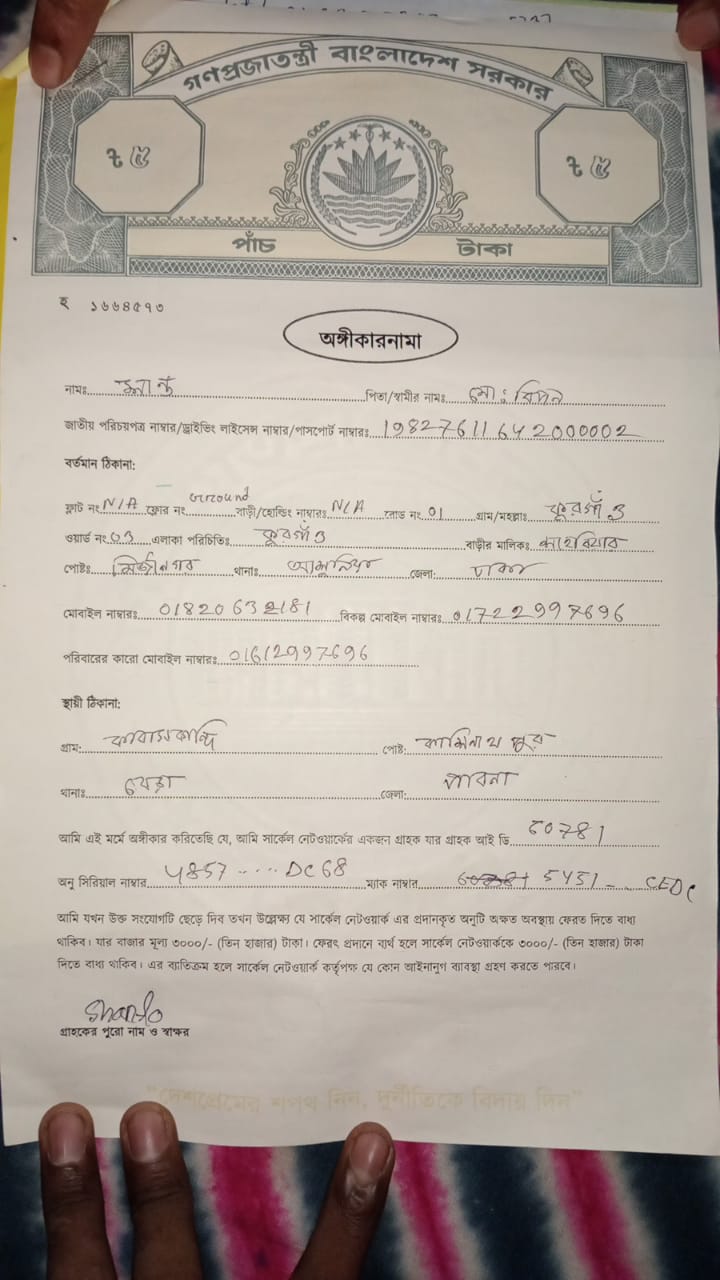 গণপ্রজাতন্ত্রী বাংলাদেশ সরকার
৳ ৫ ৳ ৫
পাঁচ টাকা
হ ১৬৬৪৫৭৩
অঙ্গীকারনামা
নামঃ শান্ত পিতা/স্বামীর নামঃ মোঃ রিপন
জাতীয় পরিচয়পত্র নাম্বার/ড্রাইভিং লাইসেন্স নাম্বার/পাসপোর্ট নাম্বারঃ 19827611642000002
বর্তমান ঠিকানা:
ফ্লাট নং N/A ফ্লোর নং Ground বাড়ী/হোল্ডিং নাম্বারঃ N/A রোড নং 01 গ্রাম/মহল্লাঃ কুরগাঁও
ওয়ার্ড নং 03 এলাকা পরিচিতিঃ কুরগাঁও বাড়ীর মালিকঃ
পোষ্টঃ মির্জানগর থানাঃ আশুলিয়া জেলাঃ ঢাকা
মোবাইল নাম্বারঃ 01820632181 বিকল্প মোবাইল নাম্বারঃ 01722997696
পরিবারের কারো মোবাইল নাম্বারঃ 01612997696
স্থায়ী ঠিকানা:
গ্রাম: পোষ্ট: কাশিনাথ পুর
থানাঃ বেড়া জেলা: পাবনা
আমি এই মর্মে অঙ্গীকার করিতেছি যে, আমি সার্কেল নেটওয়ার্কের একজন গ্রাহক যার গ্রাহক আই ডি 60781
অনু সিরিয়াল নাম্বার 4857.... DC68 ম্যাক নাম্বার 5451-... CEDC
আমি যখন উক্ত সংযোগটি ছেড়ে দিব তখন উল্লেক্ষ্য যে সার্কেল নেটওয়ার্ক এর প্রদানকৃত অনুটি অক্ষত অবস্থায় ফেরত দিতে বাধ্য
থাকিব। যার বাজার মূল্য ৩০০০/- (তিন হাজার) টাকা। ফেরৎ প্রদানে ব্যর্থ হলে সার্কেল নেটওয়ার্ককে ৩০০০/- (তিন হাজার) টাকা
দিতে বাধ্য থাকিব। এর ব্যাতিক্রম হলে সার্কেল নেটওয়ার্ক কর্তৃপক্ষ যে কোন আইনানুগ ব্যাবস্থা গ্রহণ করতে পারবে।
Shanto
গ্রাহকের পুরো নাম ও স্বাক্ষর
"দেশপ্রেমের শপথ নিন, দুর্নীতিকে বিদায় দিন"